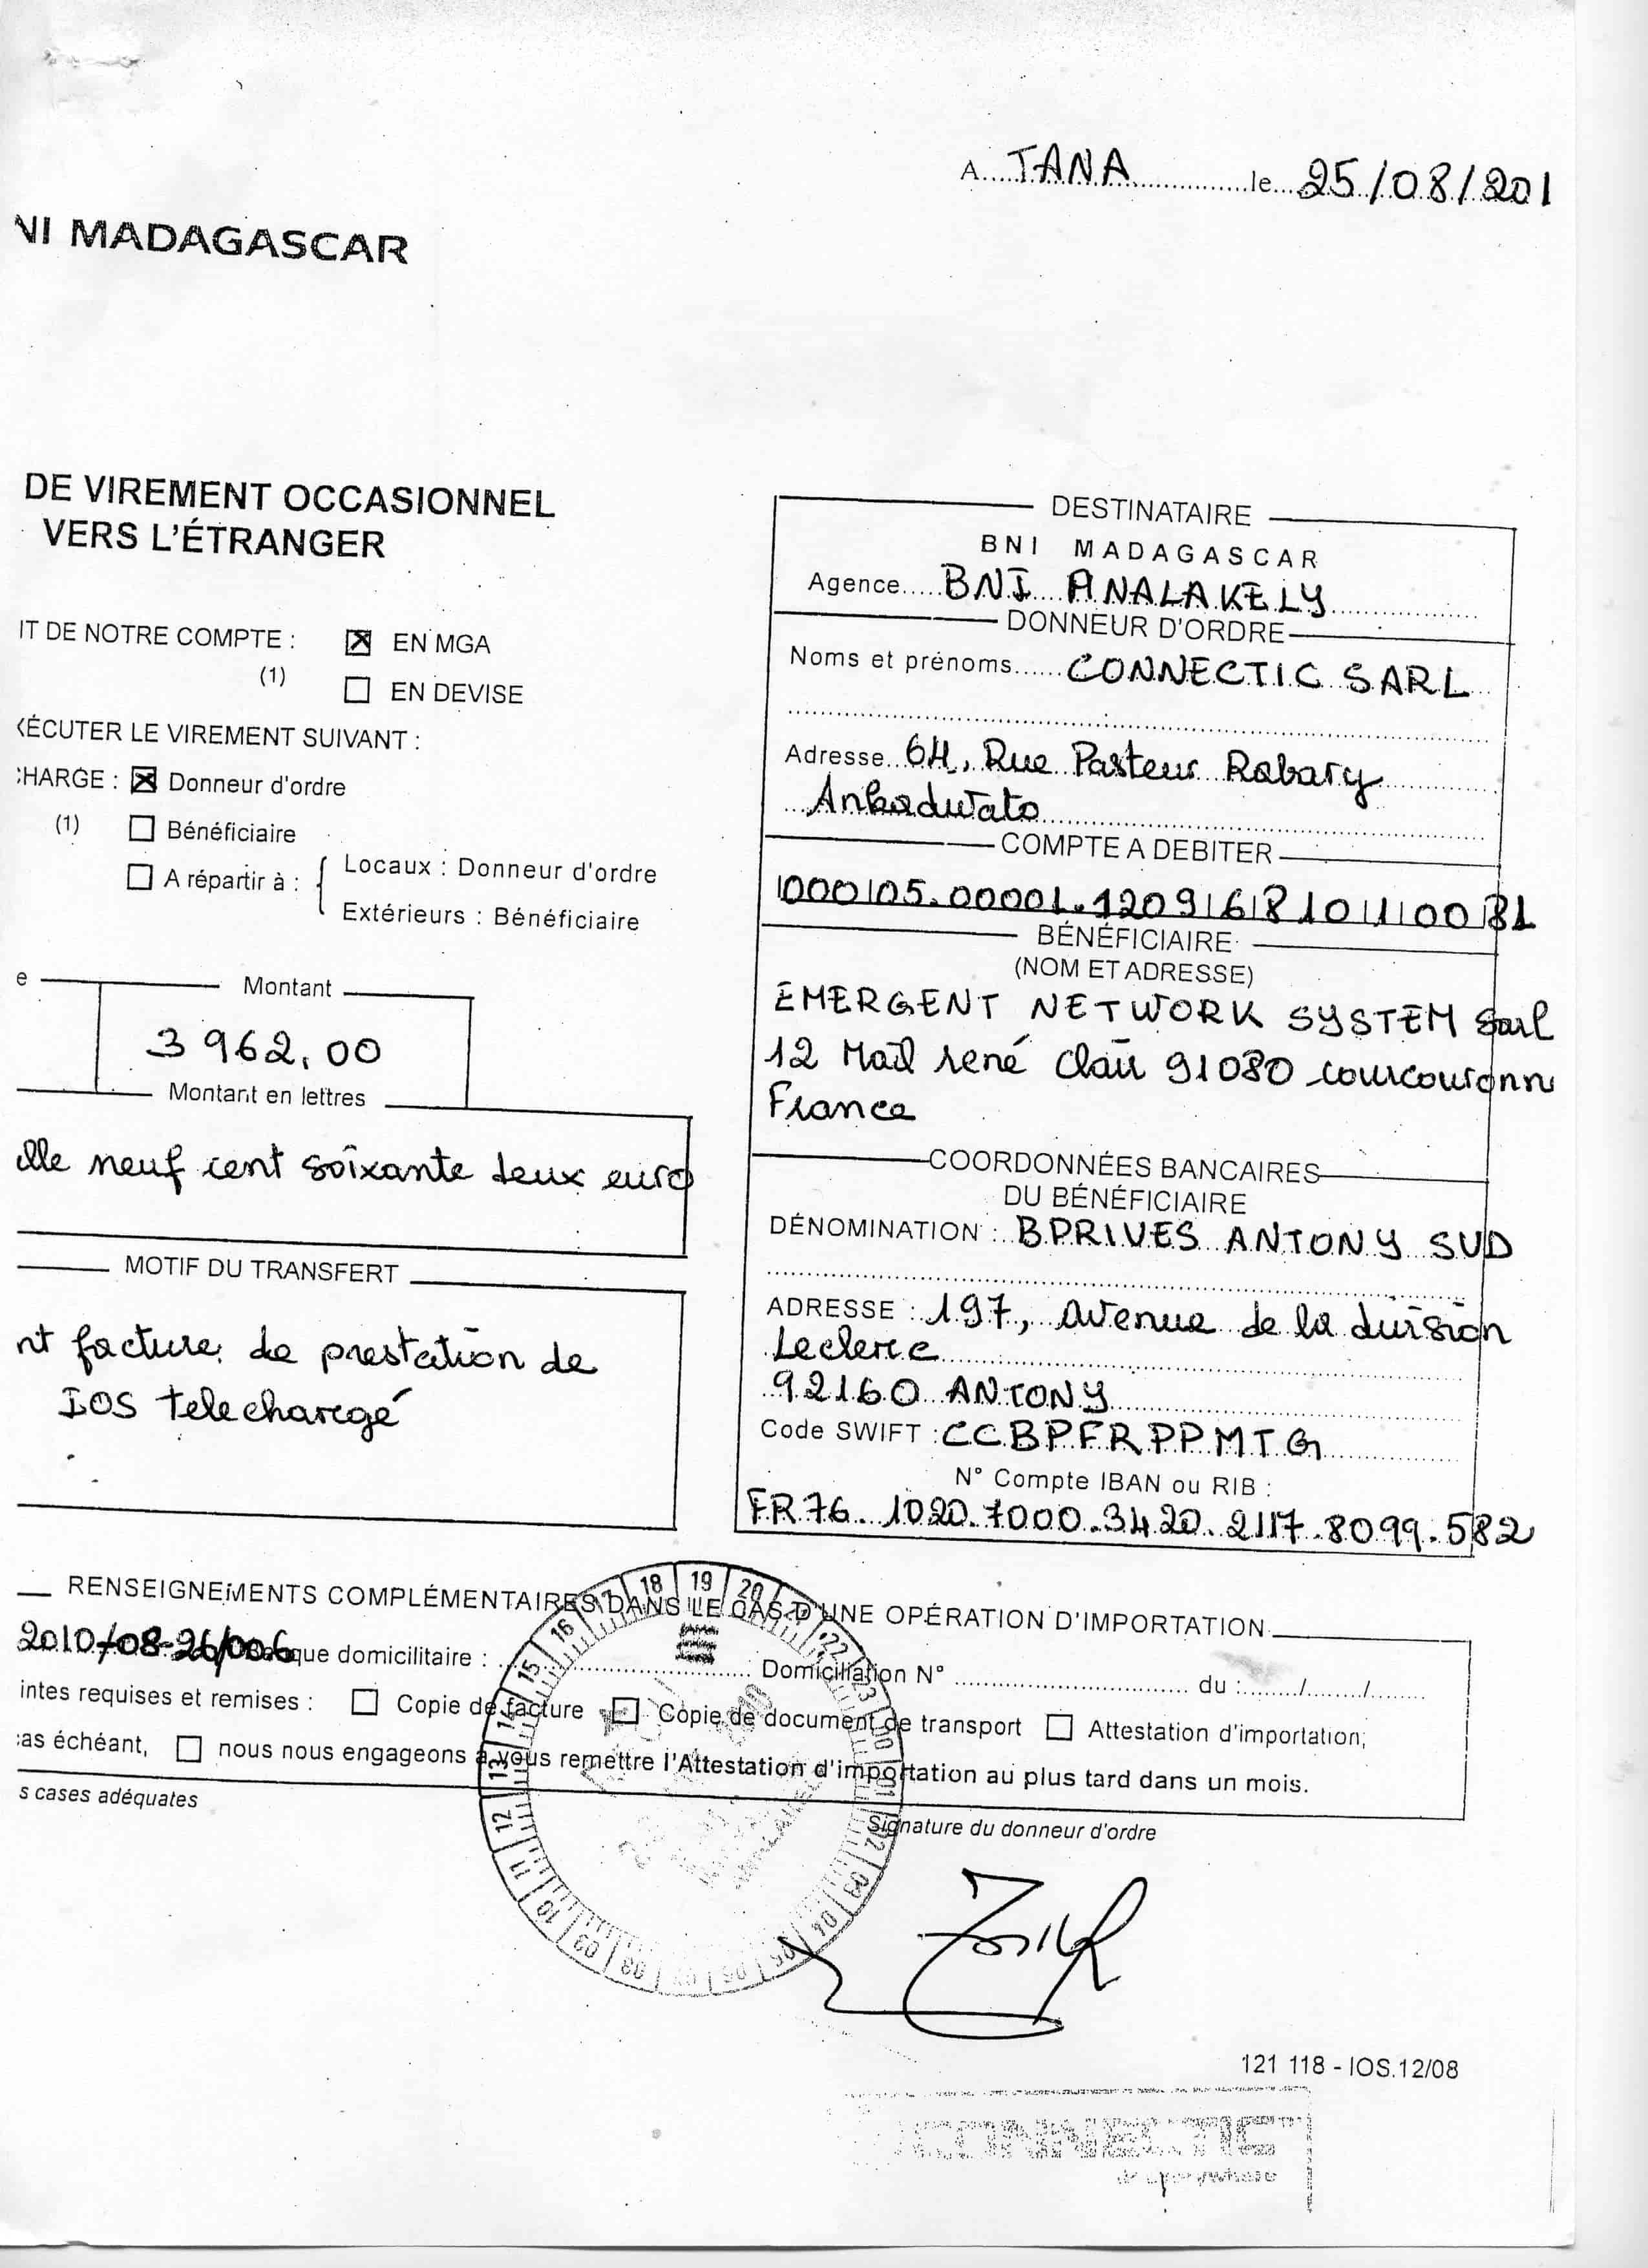 A TANA le 25/08/201
NI MADAGASCAR
DE VIREMENT OCCASIONNEL
VERS L'ÉTRANGER
IT DE NOTRE COMPTE : ☒ EN MGA
(1) ☐ EN DEVISE
XÉCUTER LE VIREMENT SUIVANT :
CHARGE : ☒ Donneur d'ordre
(1) ☐ Bénéficiaire
☐ A répartir à : { Locaux : Donneur d'ordre
Extérieurs : Bénéficiaire
e Montant
3 962,00
Montant en lettres
ille neuf cent soixante deux euro
MOTIF DU TRANSFERT
nt facture de prestation de
IOS telechargé
DESTINATAIRE
BNI MADAGASCAR
Agence BNI ANALAKELY
DONNEUR D'ORDRE
Noms et prénoms CONNECTIC SARL
Adresse 64, Rue Pasteur Rabary
Ankadivato
COMPTE A DEBITER
00005.00001.1209168101100 81
BÉNÉFICIAIRE
(NOM ET ADRESSE)
EMERGENT NETWORK SYSTEM Sarl
12 Mail rené Clair 91080 courcouronn
France
COORDONNÉES BANCAIRES
DU BÉNÉFICIAIRE
DÉNOMINATION : BPRIVES ANTONY SUD
ADRESSE : 197, avenue de la division
Leclerc
92160 ANTONY
Code SWIFT : CCBPFRPPMTG
N° Compte IBAN ou RIB :
FR76 1020.7000.3420.2117.8099.582
RENSEIGNEMENTS COMPLÉMENTAIRES DANS LE CAS D'UNE OPÉRATION D'IMPORTATION
2010/08-26/006 que domicilitaire : Domiciliation N° du : / /
intes requises et remises : ☐ Copie de facture ☐ Copie de document de transport ☐ Attestation d'importation;
cas échéant, ☐ nous nous engageons à vous remettre l'Attestation d'importation au plus tard dans un mois.
s cases adéquates
Signature du donneur d'ordre
121 118 - IOS.12/08
CONNECTIC